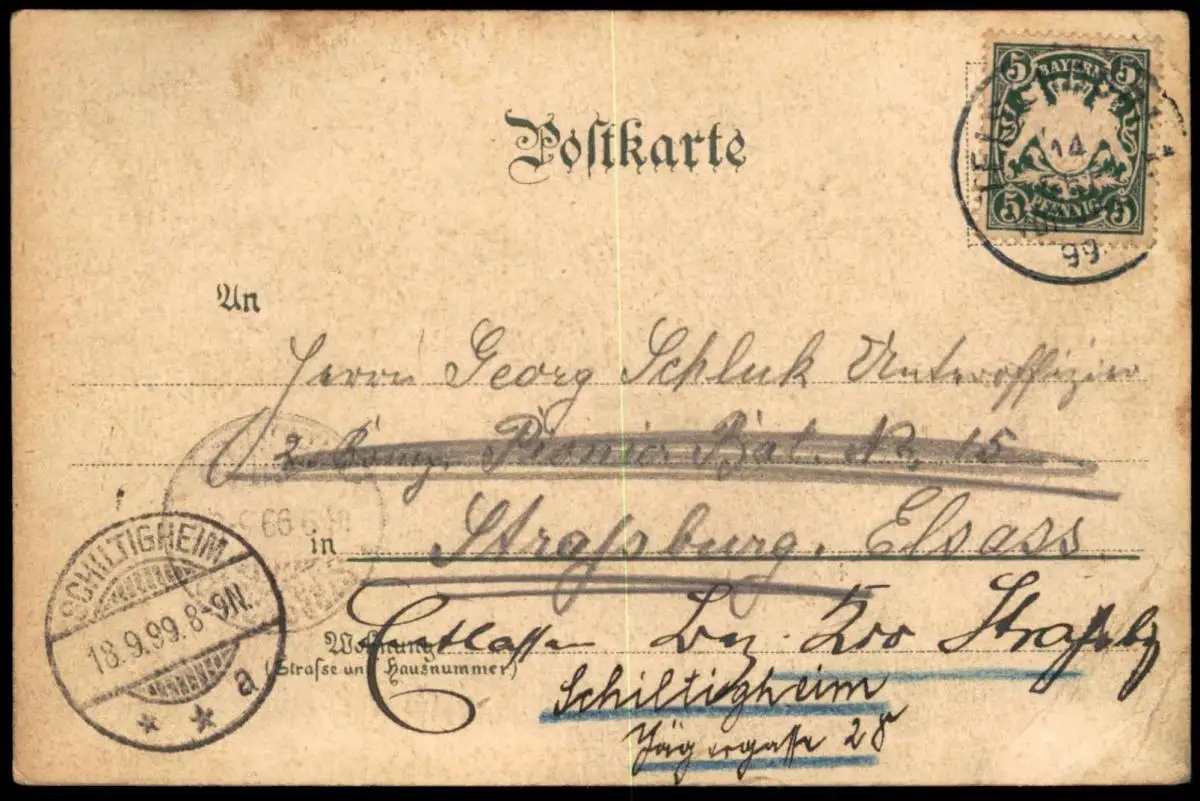 Postkarte
5 BAYERN 5
5 PFENNIG 5
14
99
An
Herrn Georg Schluk Unteroffizier
2. Comp. Pionir Bat. Nr. 15
in Straßburg, Elsass.
Wohnung
(Strafse und Hausnummer)
Entlassen Straßbg
Schiltigheim
Jägergasse 28
SCHILTIGHEIM
18.9.99. 8-9N.
a
* *